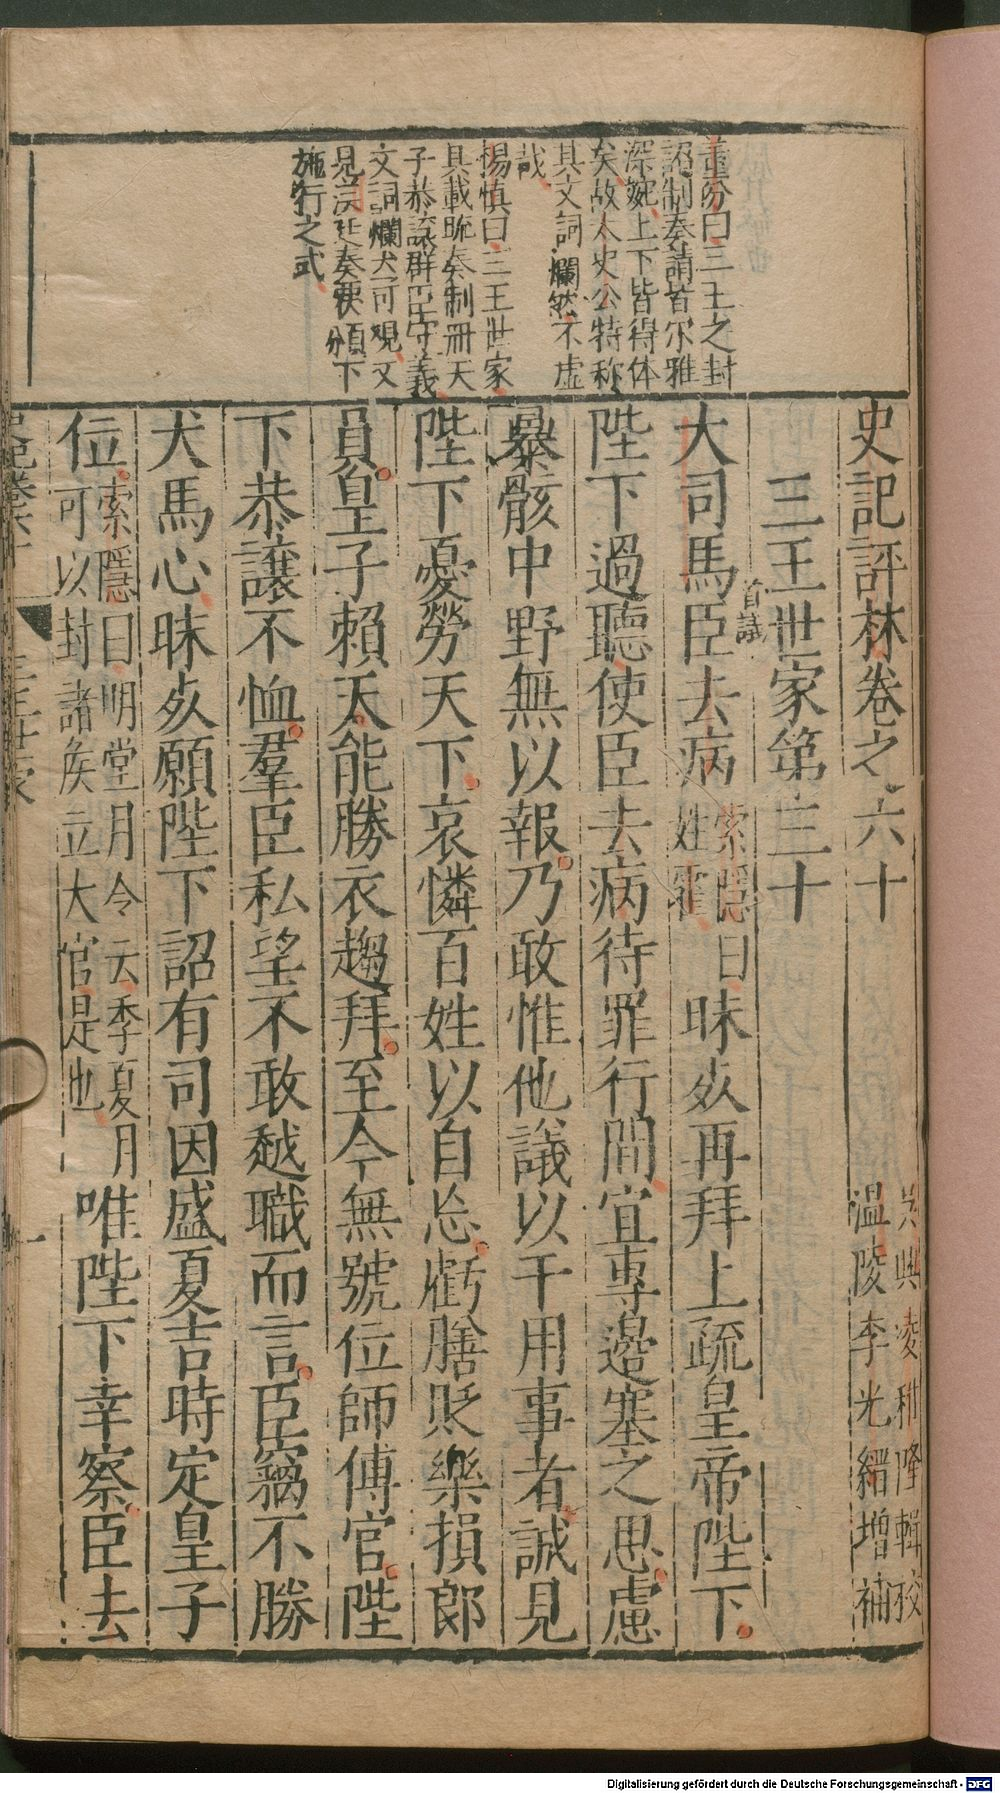 董份曰三王之封
詔制奏請皆尔雅
深婉上下皆得体
矣故太史公特称
其文詞爛然不虛
哉
楊慎曰三王世家
具載疏奏制冊天
子恭讓群臣守義
文詞爛犬可観又
見漢廷奏覆頒下
施行之式
史記評林卷之六十
吳興凌稚隆輯校
溫陵李光縉增補
三王世家第三十
首試
大司馬臣去病索隱曰姓霍昧死再拜上疏皇帝陛下
陛下過聽使臣去病待罪行間宜專邊塞之思慮
暴骸中野無以報乃敢惟他議以干用事者誠見
陛下憂勞天下哀憐百姓以自忘虧膳貶樂損郎
員皇子賴天能勝衣趨拜至今無號位師傅官陛
下恭讓不恤羣臣私望不敢越職而言臣竊不勝
犬馬心昧死願陛下詔有司因盛夏吉時定皇子
位索隱曰明堂月令云季夏月可以封諸侯立大官是也唯陛下幸察臣去
史記卷六十 三王世家 一
Digitalisierung gefördert durch die Deutsche Forschungsgemeinschaft - DFG